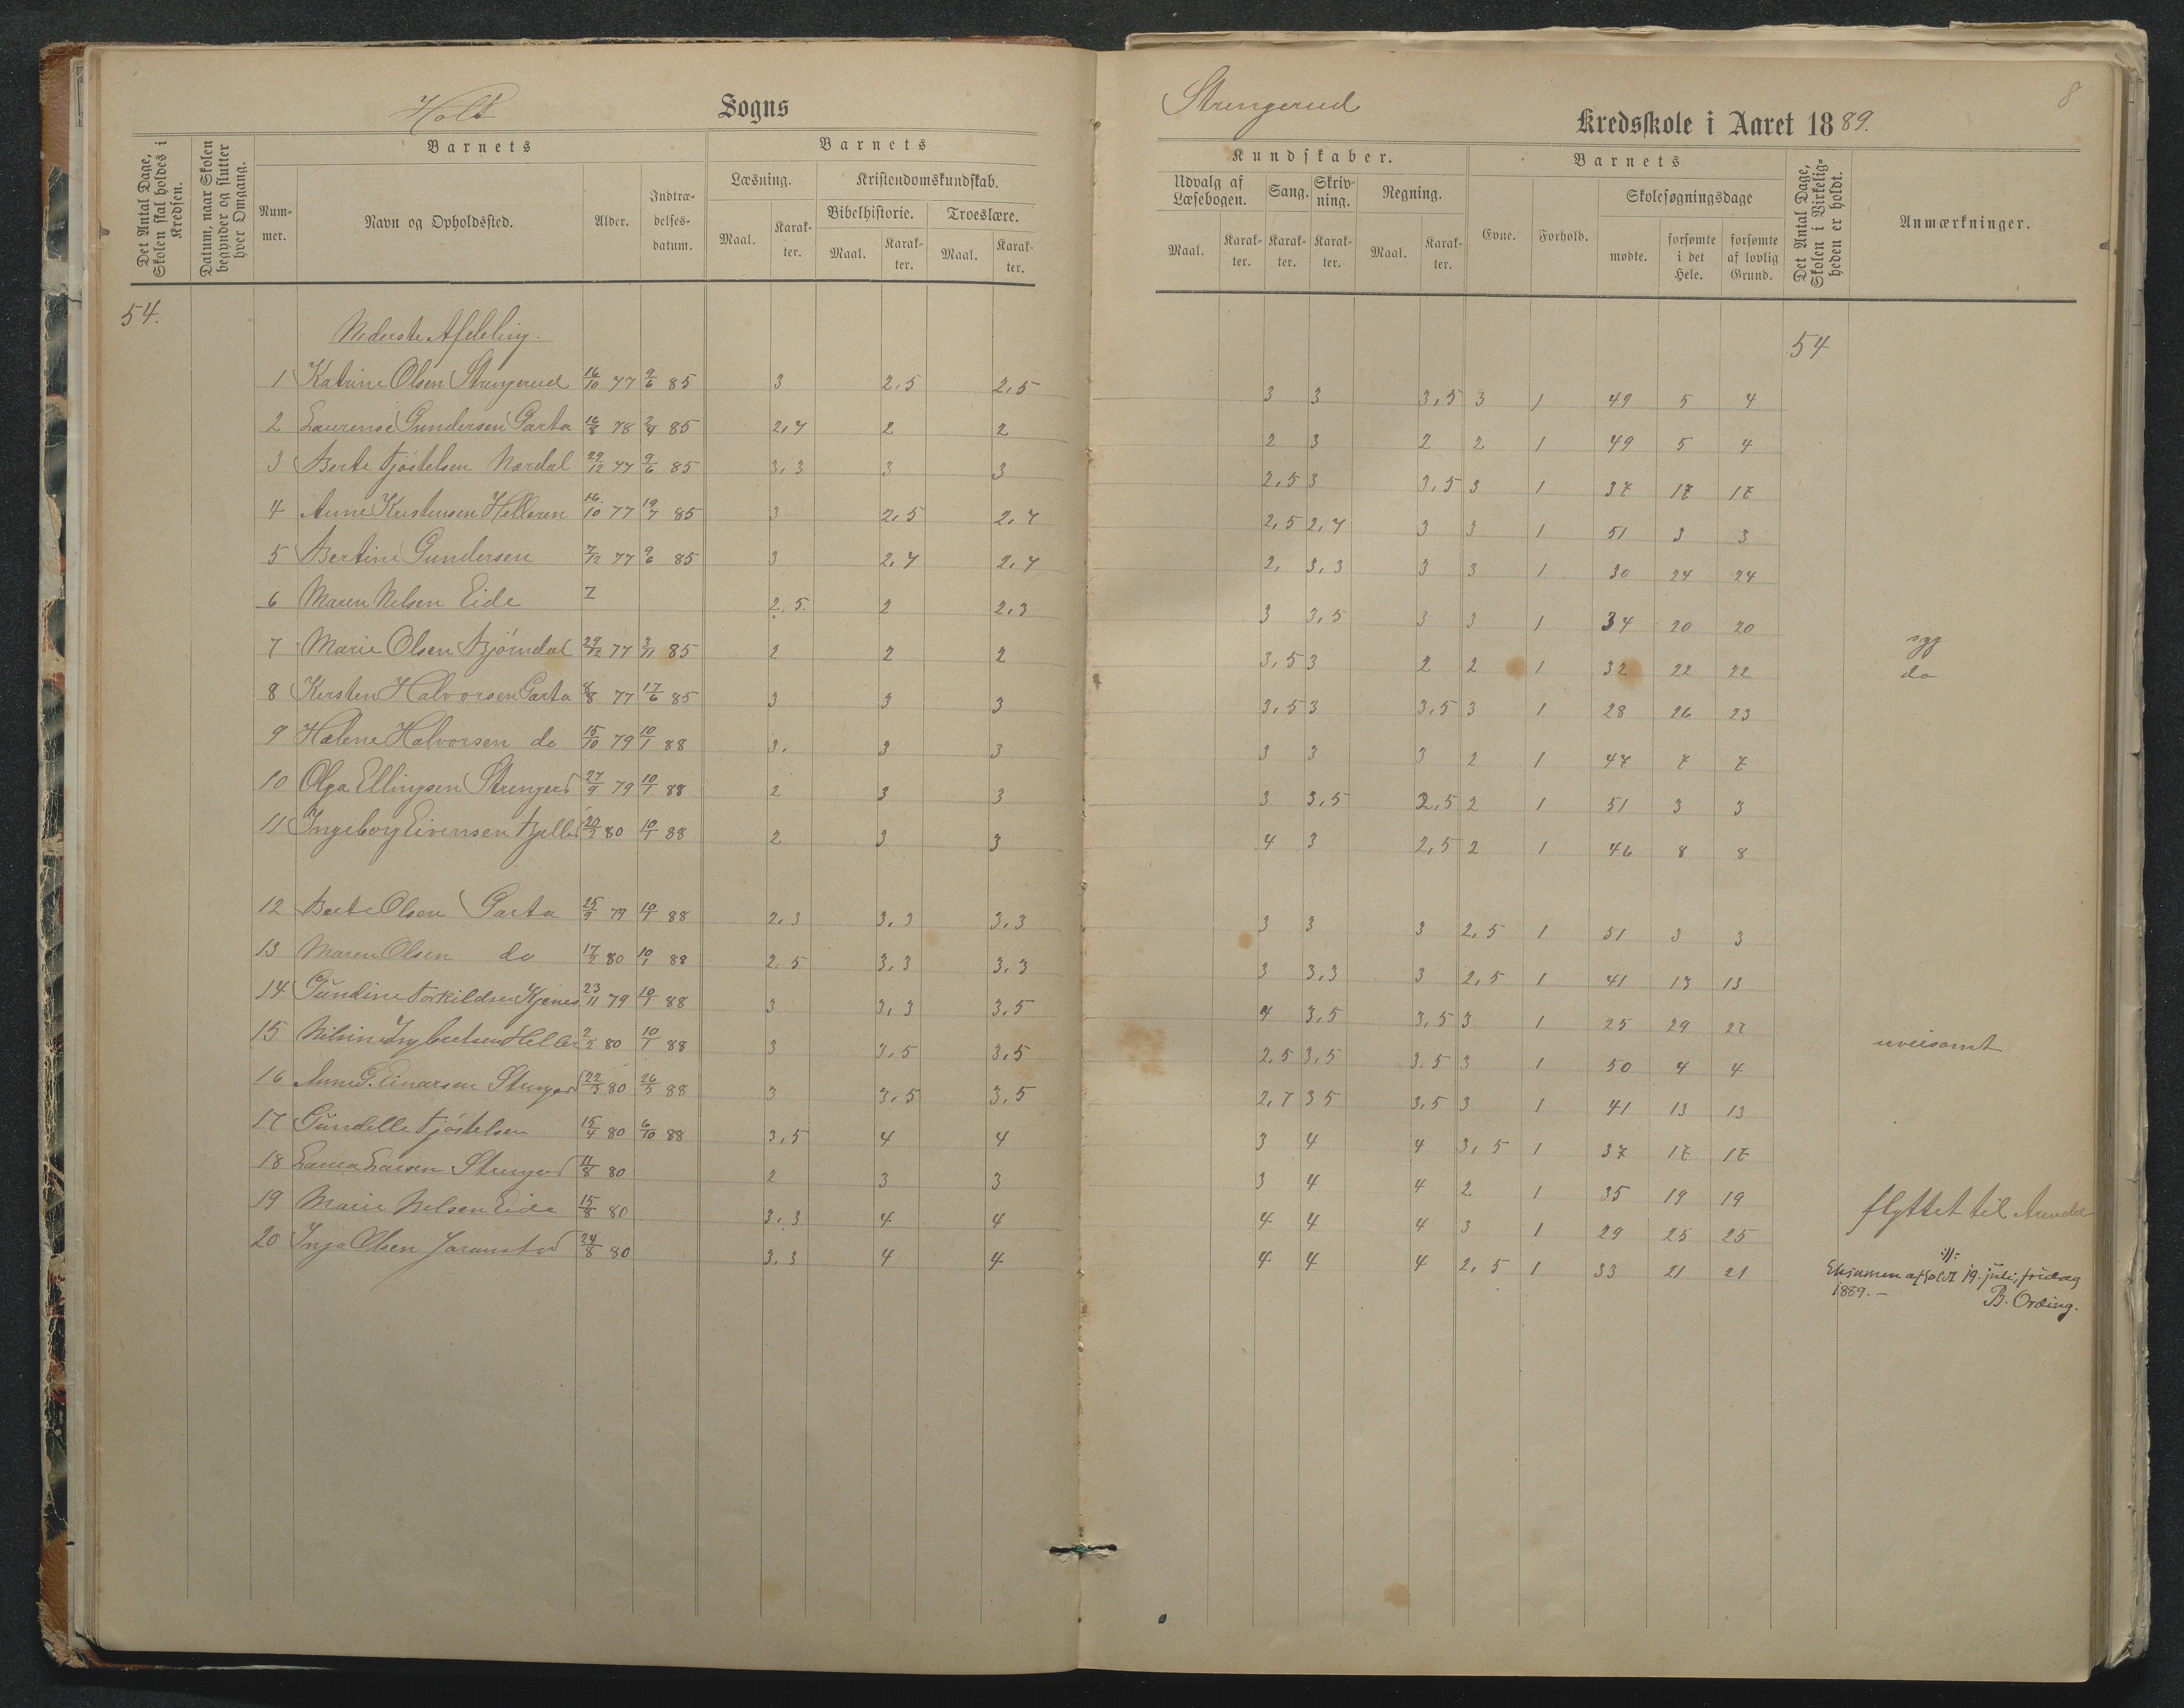 Holt Sogns
Strengerud Kredsskole i Aaret 1889. 8
Det Antal Dage, Skolen skal holdes i Kredsen.
Datum, naar Skolen begynder og slutter hver Omgang.
Barnets
Nummer. Navn og Opholdssted. Alder. Indtrædelsesdatum.
Barnets
Læsning. Kristendomskundskab.
Bibelhistorie. Troeslære.
Maal. Karakter. Maal. Karakter. Maal. Karakter.
Kundskaber.
Udvalg af Læsebogen. Sang. Skrivning. Regning.
Maal. Karakter. Karakter. Karakter. Maal. Karakter.
Barnets
Evne. Forhold. Skolesøgningsdage
mødte. forsømte i det Hele. forsømte af lovlig Grund.
Det Antal Dage, Skolen i Virkeligheden er holdt.
Anmærkninger.
54. 54
Nederste Afdeling.
1 Katrine Olsen Strengerud 16/10 77 9/6 85 3 2,5 2,5 3 3 3,5 3 1 49 5 4
2 Laurense Gundersen Garta 16/8 78 2/4 85 2,7 2 2 2 3 2 2 1 49 5 4
3 Berte Tjøstelsen Nærdal 29/12 77 9/6 85 3,3 3 3 2,5 3 3,5 3 1 37 17 17
4 Anne Kristensen Helleren 16/10 77 19/7 85 3 2,5 2,7 2,5 2,7 3 3 1 51 3 3
5 Bertine Gundersen 7/12 77 9/6 85 3 2,7 2,7 2, 3,3 3 3 1 30 24 24
6 Maren Nelsen Eide 2,5 2 2,3 3 3,5 3 3 1 34 20 20 syg
7 Marie Olsen Bjørndal 29/12 77 3/11 85 2 2 2 3,5 3 2 2 1 32 22 22 do
8 Kirsten Halvorsen Garta 8/8 77 17/6 85 3 3 3 3,5 3 3,5 3 1 28 26 23
9 Helene Halvorsen do 15/10 79 10/1 88 3, 3 3 3 3 3 2 1 47 7 7
10 Olga Ellingsen Strengerd 27/9 79 10/1 88 2 3 3 3 3,5 2,5 2 1 51 3 3
11 Ingeborg Eivensen 20/2 80 10/1 88 2 3 3 4 3 2,5 2 1 46 8 8
12 Berte Olsen Garta 25/9 79 10/1 88 2,3 3,3 3,3 3 3 3 2,5 1 51 3 3
13 Maren Olsen do 17/2 80 10/1 88 2,5 3,3 3,3 3 3,3 3 2,5 1 41 13 13
14 Gundine Torkildsen Kjenes 23/11 79 10/1 88 3 3,3 3,5 4 3,5 3,5 3 1 25 29 27 uveisomt
15 Nilsine Ingbretsen Heller 2/2 80 10/1 88 3 3,5 3,5 2,5 3,5 3,5 3 1 50 4 4
16 Anne G. Einarsen Strenger 22/3 80 26/3 88 3 3,5 3,5 2,7 3 5 3,5 3 1 41 13 13
17 Gundelle Tjøstelsen 15/4 80 6/10 88 3,5 4 4 3 4 4 3,5 1 37 17 17
18 Laura Larsen Strenger 11/8 80 2 3 3 3 4 4 2 1 35 19 19
19 Marie Nelsen Eide 15/8 80 3,3 4 4 4 4 4 3 1 29 25 25 flyttet til Arendal
20 Inga Olsen 24/8 80 3,3 4 4 4 4 4 2,5 1 33 21 21
Eksamen afholdt 19. juli, fredag
1889. –
B. Ording.